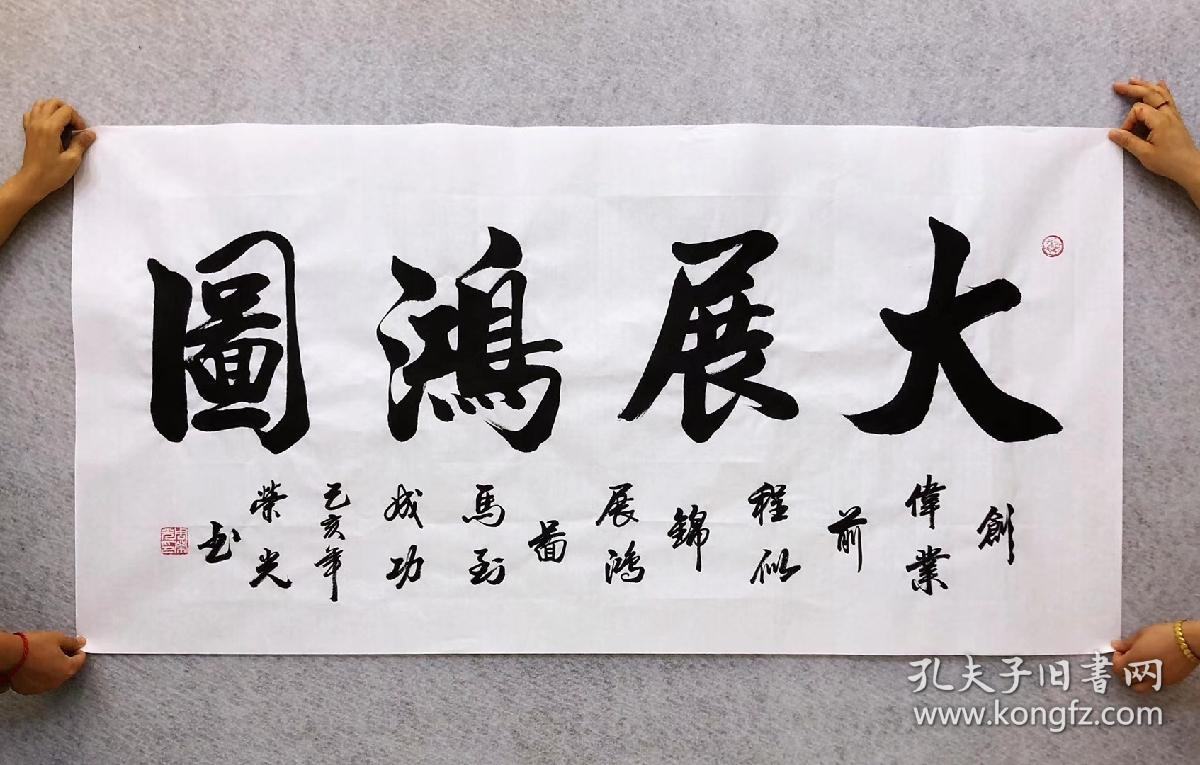 大展鴻圖
創
偉業
前
程似
錦
展鴻
圖
馬到
成功
己亥年
榮光
书
孔夫子旧書网
www.kongfz.com